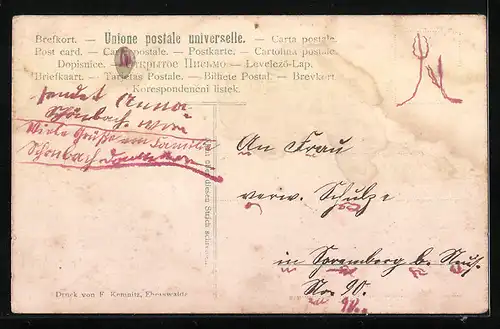 Brefkort. — Unione postale universelle. — Carta postale.
Post card. — Carte postale. — Postkarte. — Cartolina postale.
Dopisnice. — Открытое Письмо — Levelező-Lap.
Briefkaart. — Tarjetas Postale. — Bilhete Postal. — Brevkort
Korespondenční listek.
sendet Anna
Schönbach
Viele Grüße an Familie
Schönbach
An Frau
verw. Schulze
in Spremberg b. Neus.
No. 90.
90..
Druck von F. Kemnitz, Eberswalde